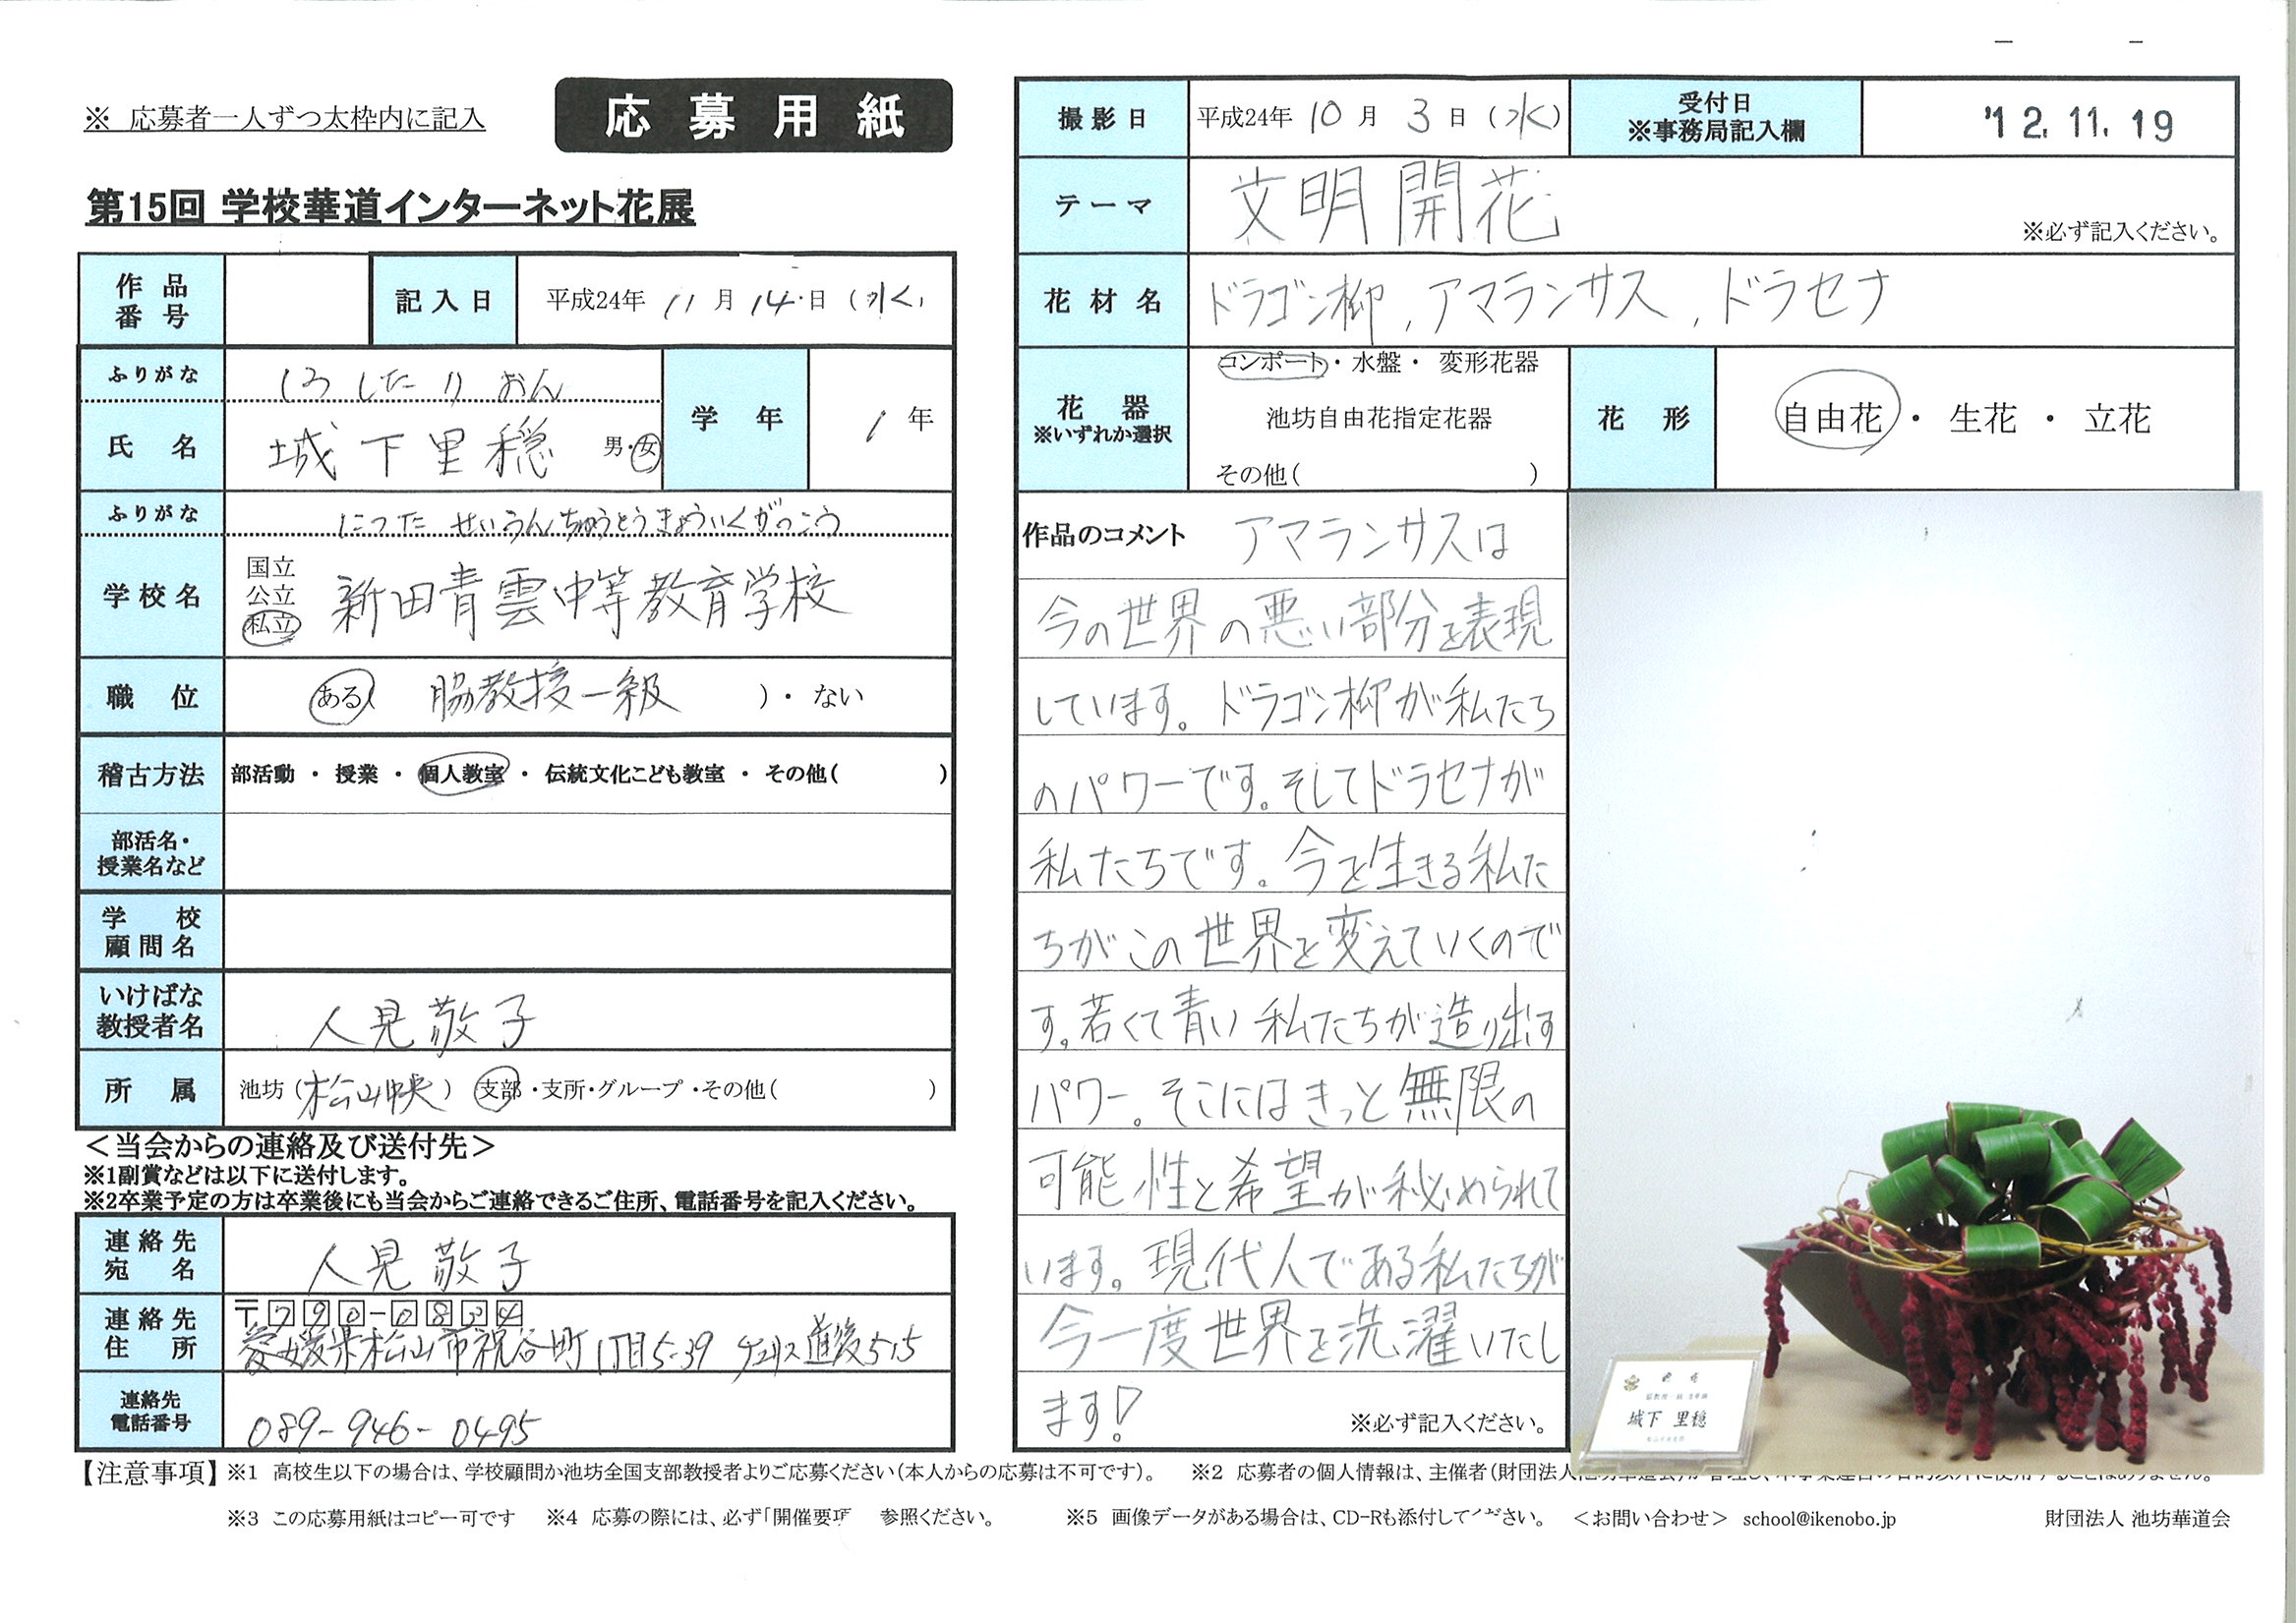 ※ 応募者一人ずつ太枠内に記入
応募用紙
第15回 学校華道インターネット花展
作品番号
記入日 平成24年 11月 14日 (水)
ふりがな しろ した り おん
氏名 城下里穏 男・女
学年 1年
ふりがな にった せいうんちゅうとうきょういくがっこう
学校名 国立 公立 私立 新田青雲中等教育学校
職位 ある( 脇教授一級 )・ ない
稽古方法 部活動 ・ 授業 ・ 個人教室 ・ 伝統文化こども教室 ・ その他( )
部活名・授業名など
学校顧問名
いけばな教授者名 人見敬子
所属 池坊 (松山中央) 支部・支所・グループ・その他( )
＜当会からの連絡及び送付先＞
※1副賞などは以下に送付します。
※2卒業予定の方は卒業後にも当会からご連絡できるご住所、電話番号を記入ください。
連絡先宛名 人見敬子
連絡先住所 〒790-0834
愛媛県松山市祝谷町1丁目5-39 道後515
連絡先電話番号 089-946-0495
撮影日 平成24年 10月 3日 (水)
受付日 ※事務局記入欄 '12.11.19
テーマ 文明開花
※必ず記入ください。
花材名 ドラゴン柳, アマランサス, ドラセナ
花器 ※いずれか選択
コンポート・水盤・変形花器
池坊自由花指定花器
その他( )
花形 自由花 ・ 生花 ・ 立花
作品のコメント アマランサスは
今の世界の悪い部分を表現
しています。ドラゴン柳が私たち
のパワーです。そしてドラセナが
私たちです。今を生きる私た
ちがこの世界を変えていくので
す。若くて青い私たちが造り出す
パワー。そこにはきっと無限の
可能性と希望が秘められて
います。現代人である私たちが
今一度世界を洗濯いたし
ます!
※必ず記入ください。
城下 里穏
【注意事項】 ※1 高校生以下の場合は、学校顧問か池坊全国支部教授者よりご応募ください(本人からの応募は不可です)。 ※2 応募者の個人情報は、主催者(財団法人
※3 この応募用紙はコピー可です ※4 応募の際には、必ず「開催要項 参照ください。 ※5 画像データがある場合は、CD-Rも添付してください。 ＜お問い合わせ＞ school@ikenobo.jp 財団法人 池坊華道会